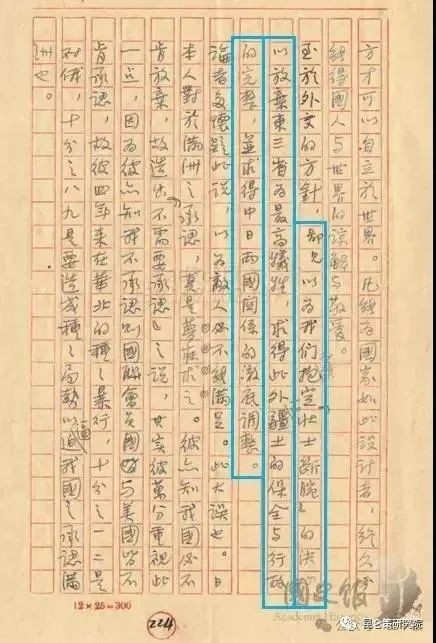 方才可以自立於世界。凡能為國家如此設計者，終久必
能得國人与世界的諒解与敬愛。
至於外交的方針，鄙見以為我们抱定「壯士斷腕」的决
以放棄東三省為最高犧牲，求得此外疆土的保全与行政
的完整，並求得中日两國関係的澈底調整。
論者多懷疑此說，以為敵人必不能滿足。此大誤也。日
本人對於滿洲之承認，真是夢寐求之。彼亦知我國必不
肯放棄，故造出「不需要承認」之說，其实彼萬分重視此
一点，因為彼亦知我不承認則國聯會員國与美國皆不
肯承認，故彼四年来在華北的種々暴行，十分之一二是
對俄，十分之八九是要造成種々局勢以逼我國之承認滿
洲也。
12×25=300
224
國史館
昆仑策研究院